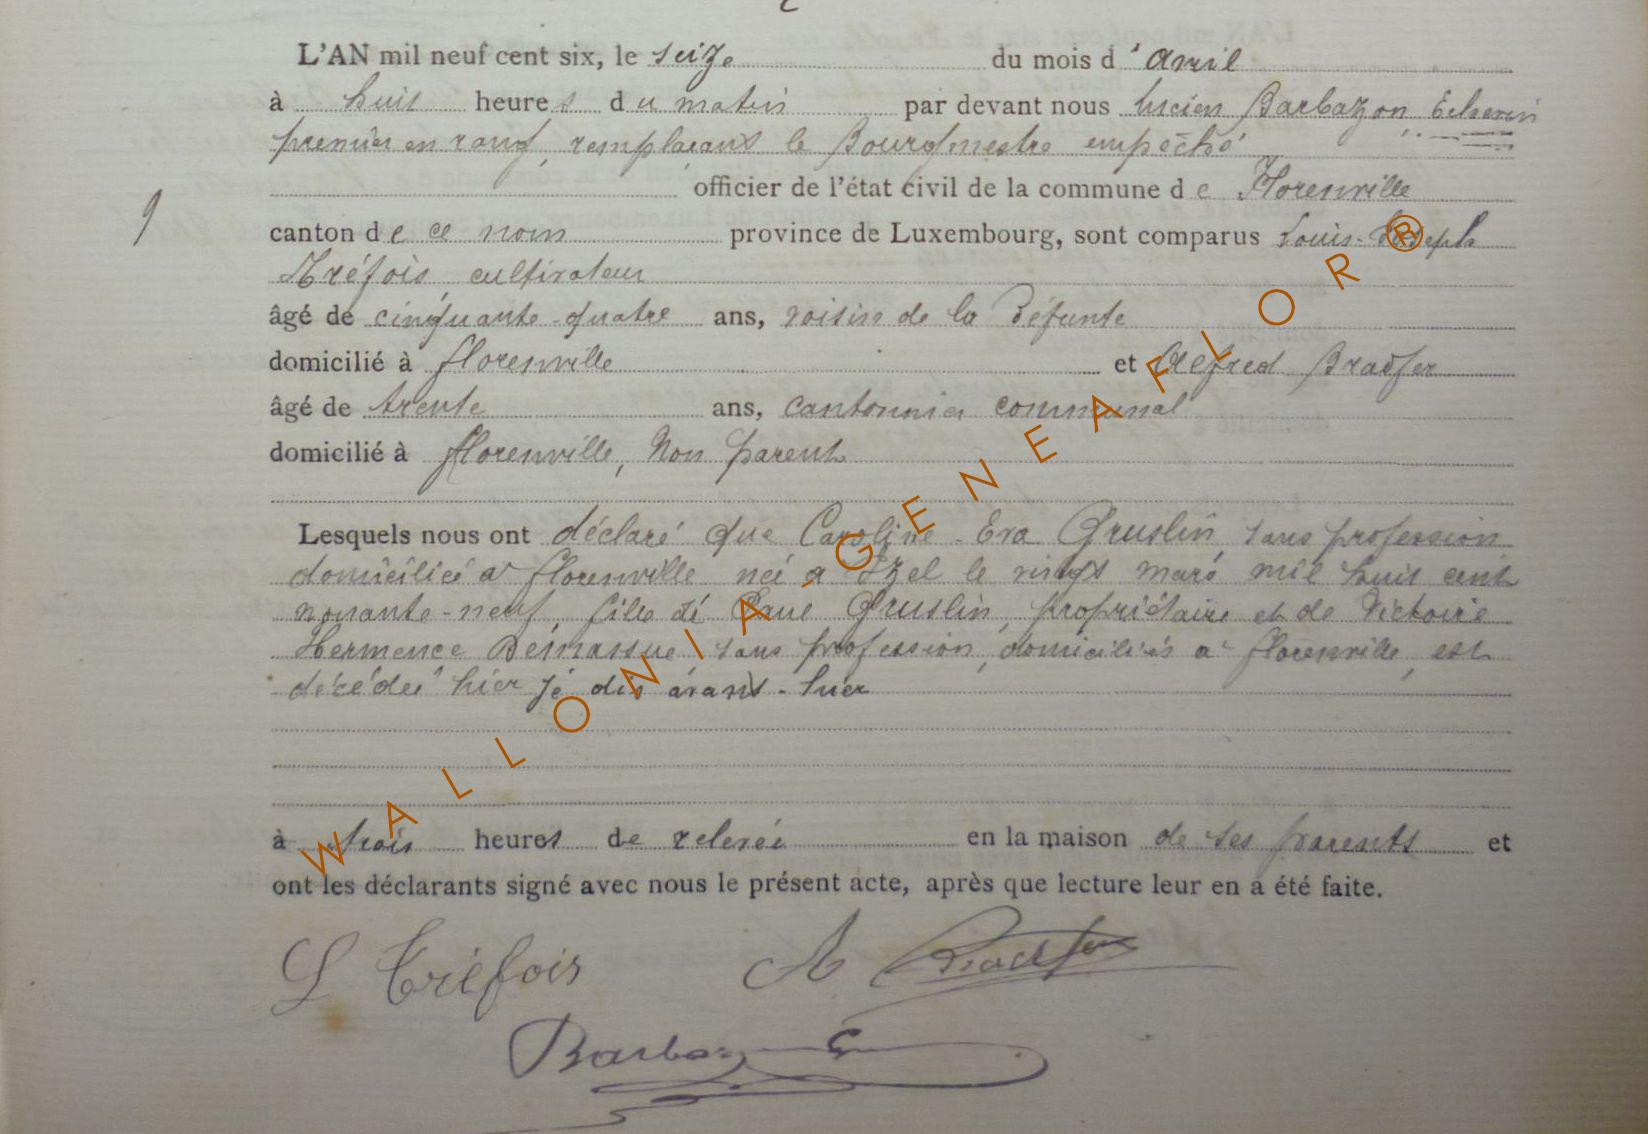 L'AN mil neuf cent six, le seize du mois d'Avril
à huit heures du matin par devant nous Lucien Barbazon, Echevin
premier en rang, remplaçant le Bourgmestre empêché
officier de l'état civil de la commune de Florenville
9
canton de ce nom province de Luxembourg, sont comparus Louis-Joseph
Tréfois, cultivateur
âgé de cinquante-quatre ans, voisin de la Défunte
domicilié à florenville et Alfred Bradfer
âgé de trente ans, cantonnier communal
domicilié à florenville, Non parent
Lesquels nous ont déclaré que Caroline-Eva Gruslin, sans profession
domiciliée à florenville née a Izel le vingt mars mil huit cent
nonante-neuf, fille dé Paul Gruslin, propriétaire et de Victoire
Hermence Démassue, sans profession, domiciliés a florenville, est
décédée hier jé dis avant-hier
à trois heures de relevée en la maison de ses parents et
ont les déclarants signé avec nous le présent acte, après que lecture leur en a été faite.
L Tréfois A Bradfer
Barbazon
WALLONIA-GENEAFLOR®